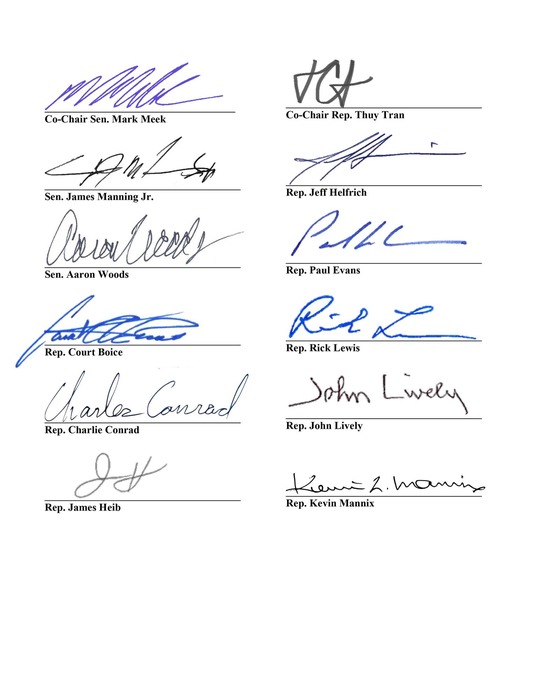 Co-Chair Sen. Mark Meek
Co-Chair Rep. Thuy Tran
Sen. James Manning Jr.
Rep. Jeff Helfrich
Aaron Woods
Sen. Aaron Woods
Rep. Paul Evans
Rep. Court Boice
Rick L
Rep. Rick Lewis
Charles Conrad
Rep. Charlie Conrad
John Lively
Rep. John Lively
JH
Rep. James Heib
Kevin L. Mannix
Rep. Kevin Mannix